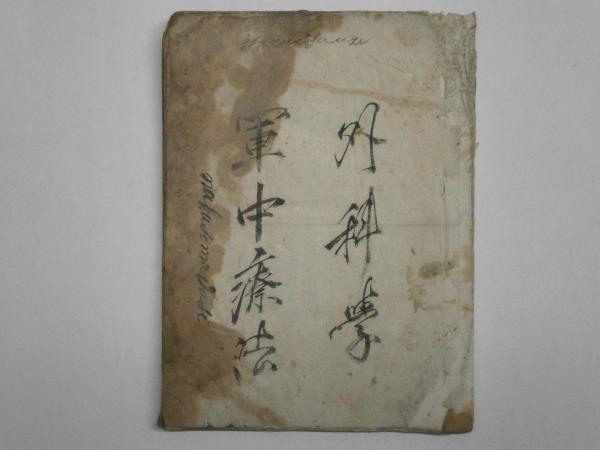 外科学
軍中療法